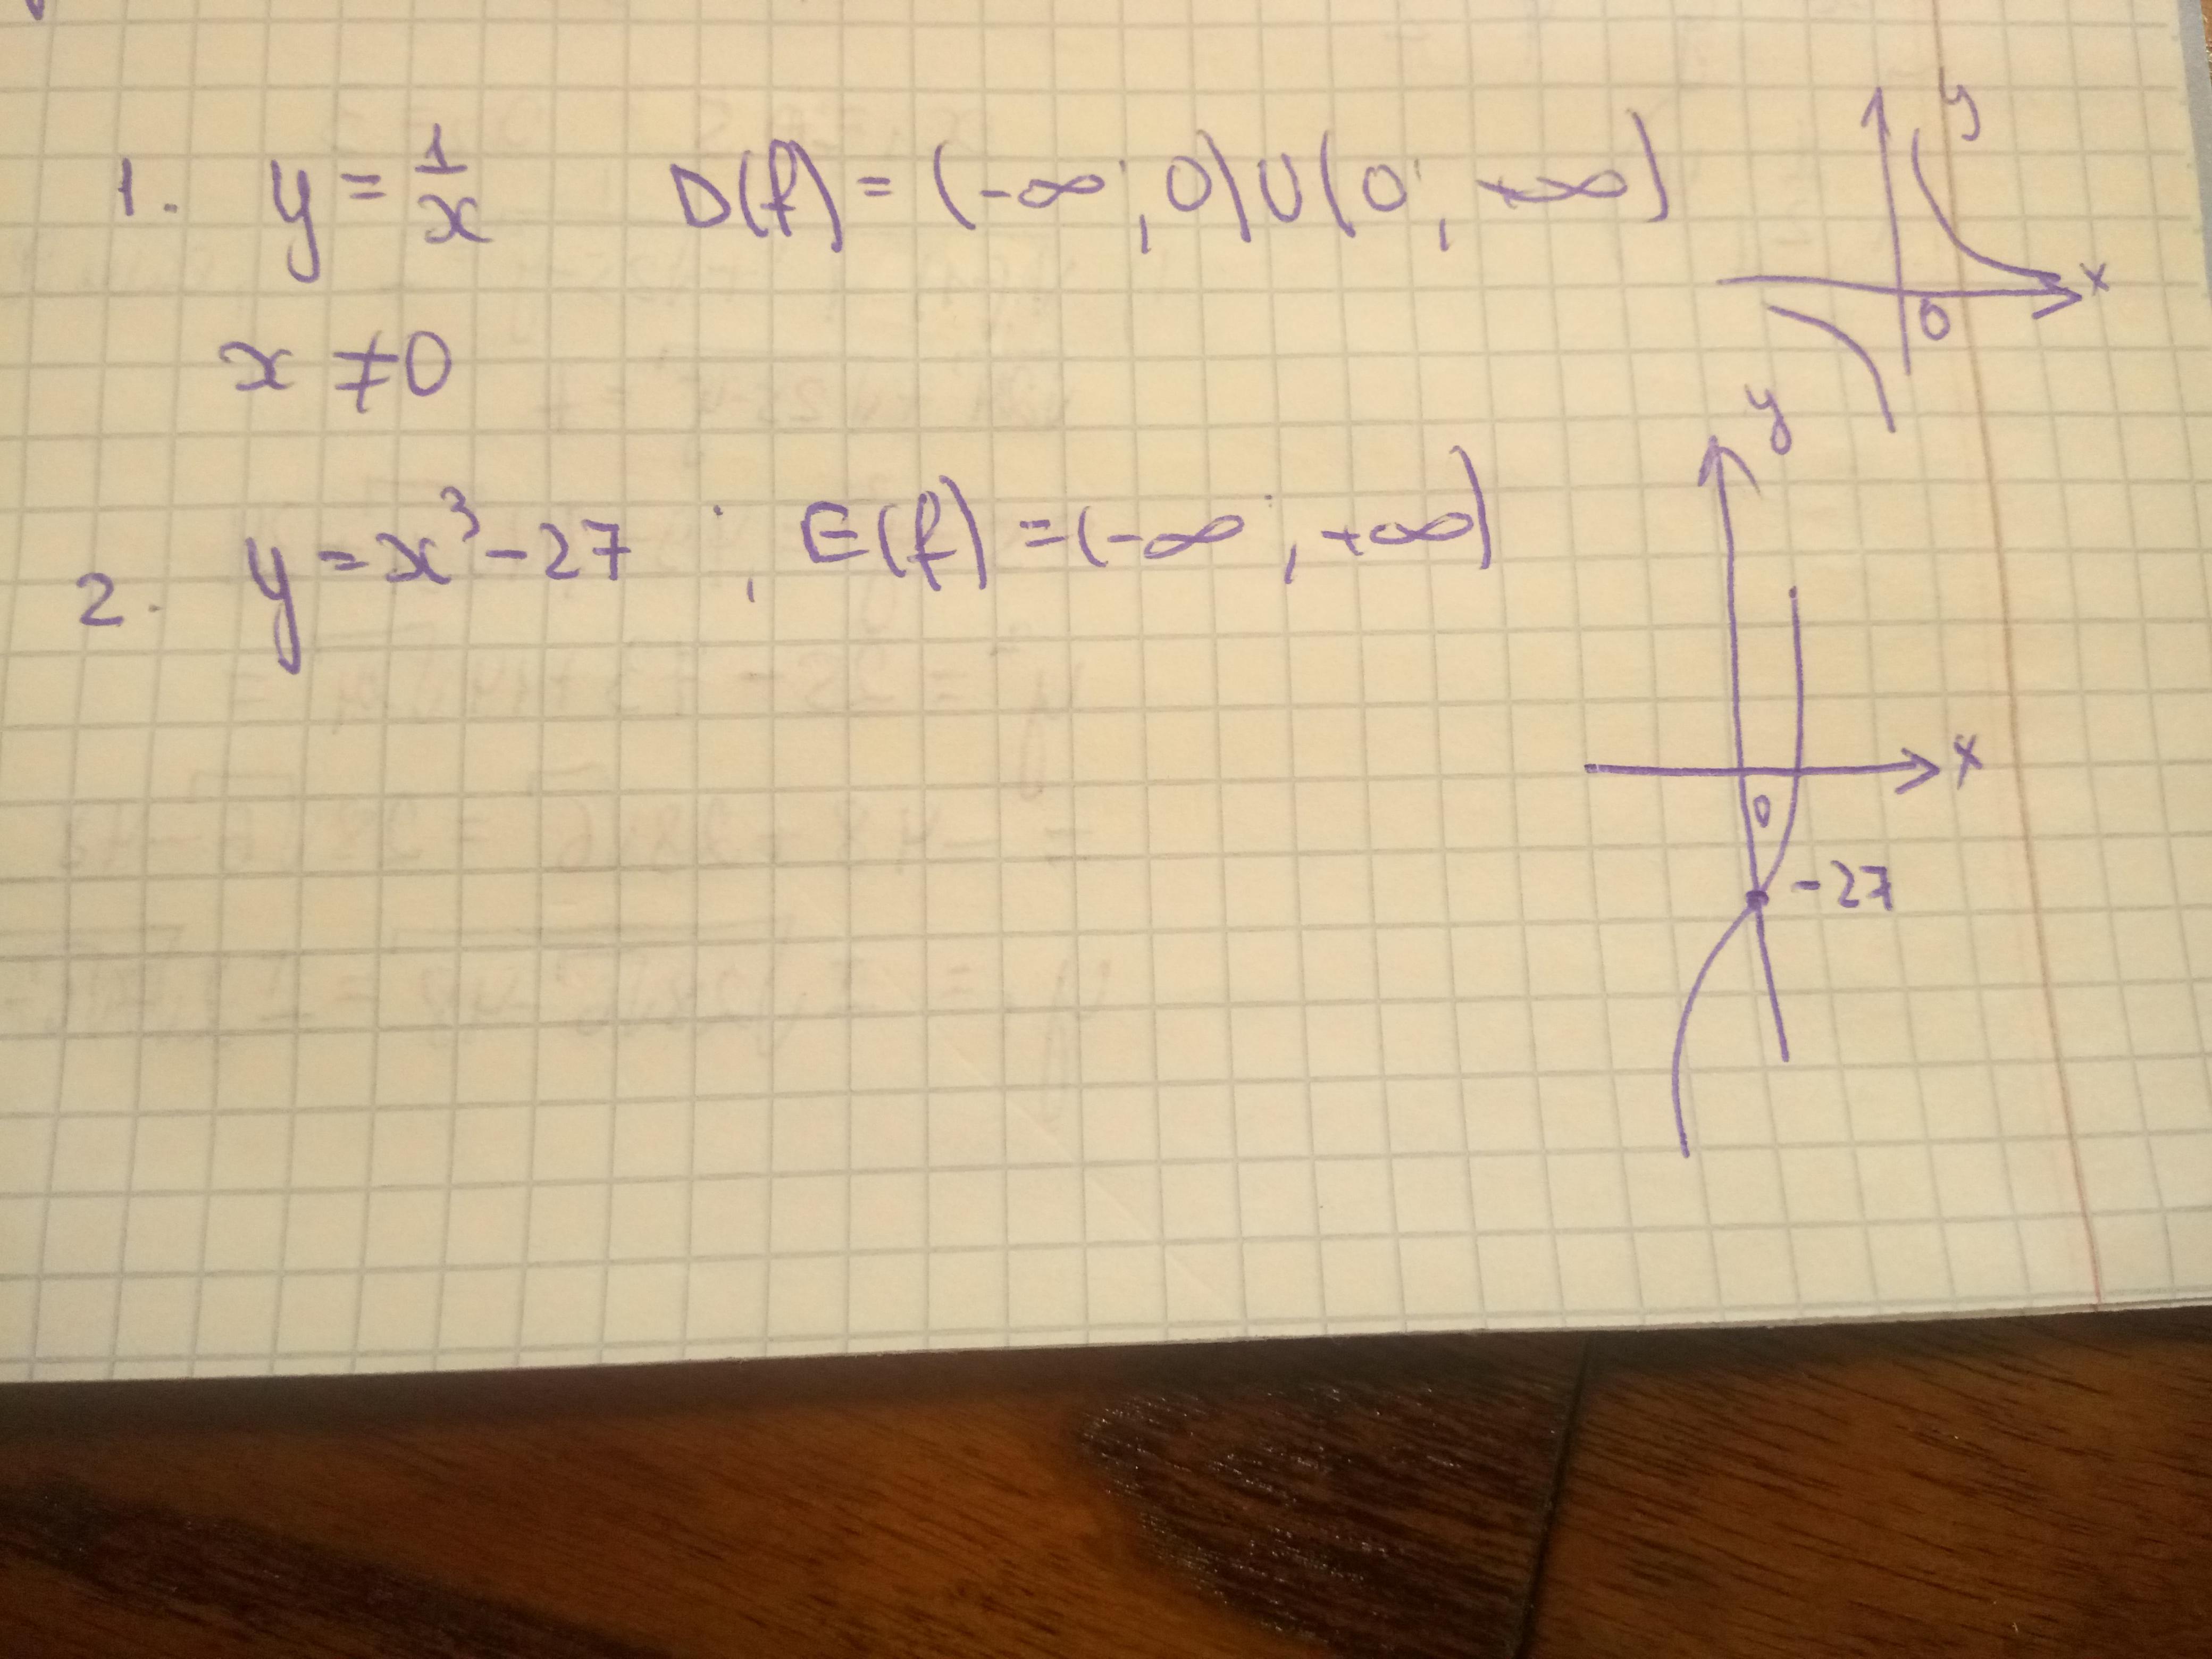 1. y = 1/x D(f) = (-∞; 0) U (0; +∞)
x ≠ 0
y
x
0
2. y = x³ - 27 ; E(f) = (-∞; +∞)
y
x
0
-27